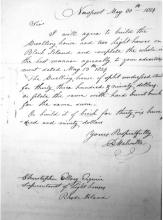 Newport May 20th 1829
Sir
I will agree to build the
Dwelling house and two light houses on
Block Island, and complete the whole in
the best manner agreeably to your advertise
ment dated May 1st 1829
The Dwelling house of split undressed stone
for thirty three hundred & ninety dollars,
or plaster the same with hard brick
for the same sum.
or build it of brick for thirty six hun
dred and ninety dollars
Yours Respectfully
Christopher Ellery Esquire
Superintendent of Light houses
Rhode Island